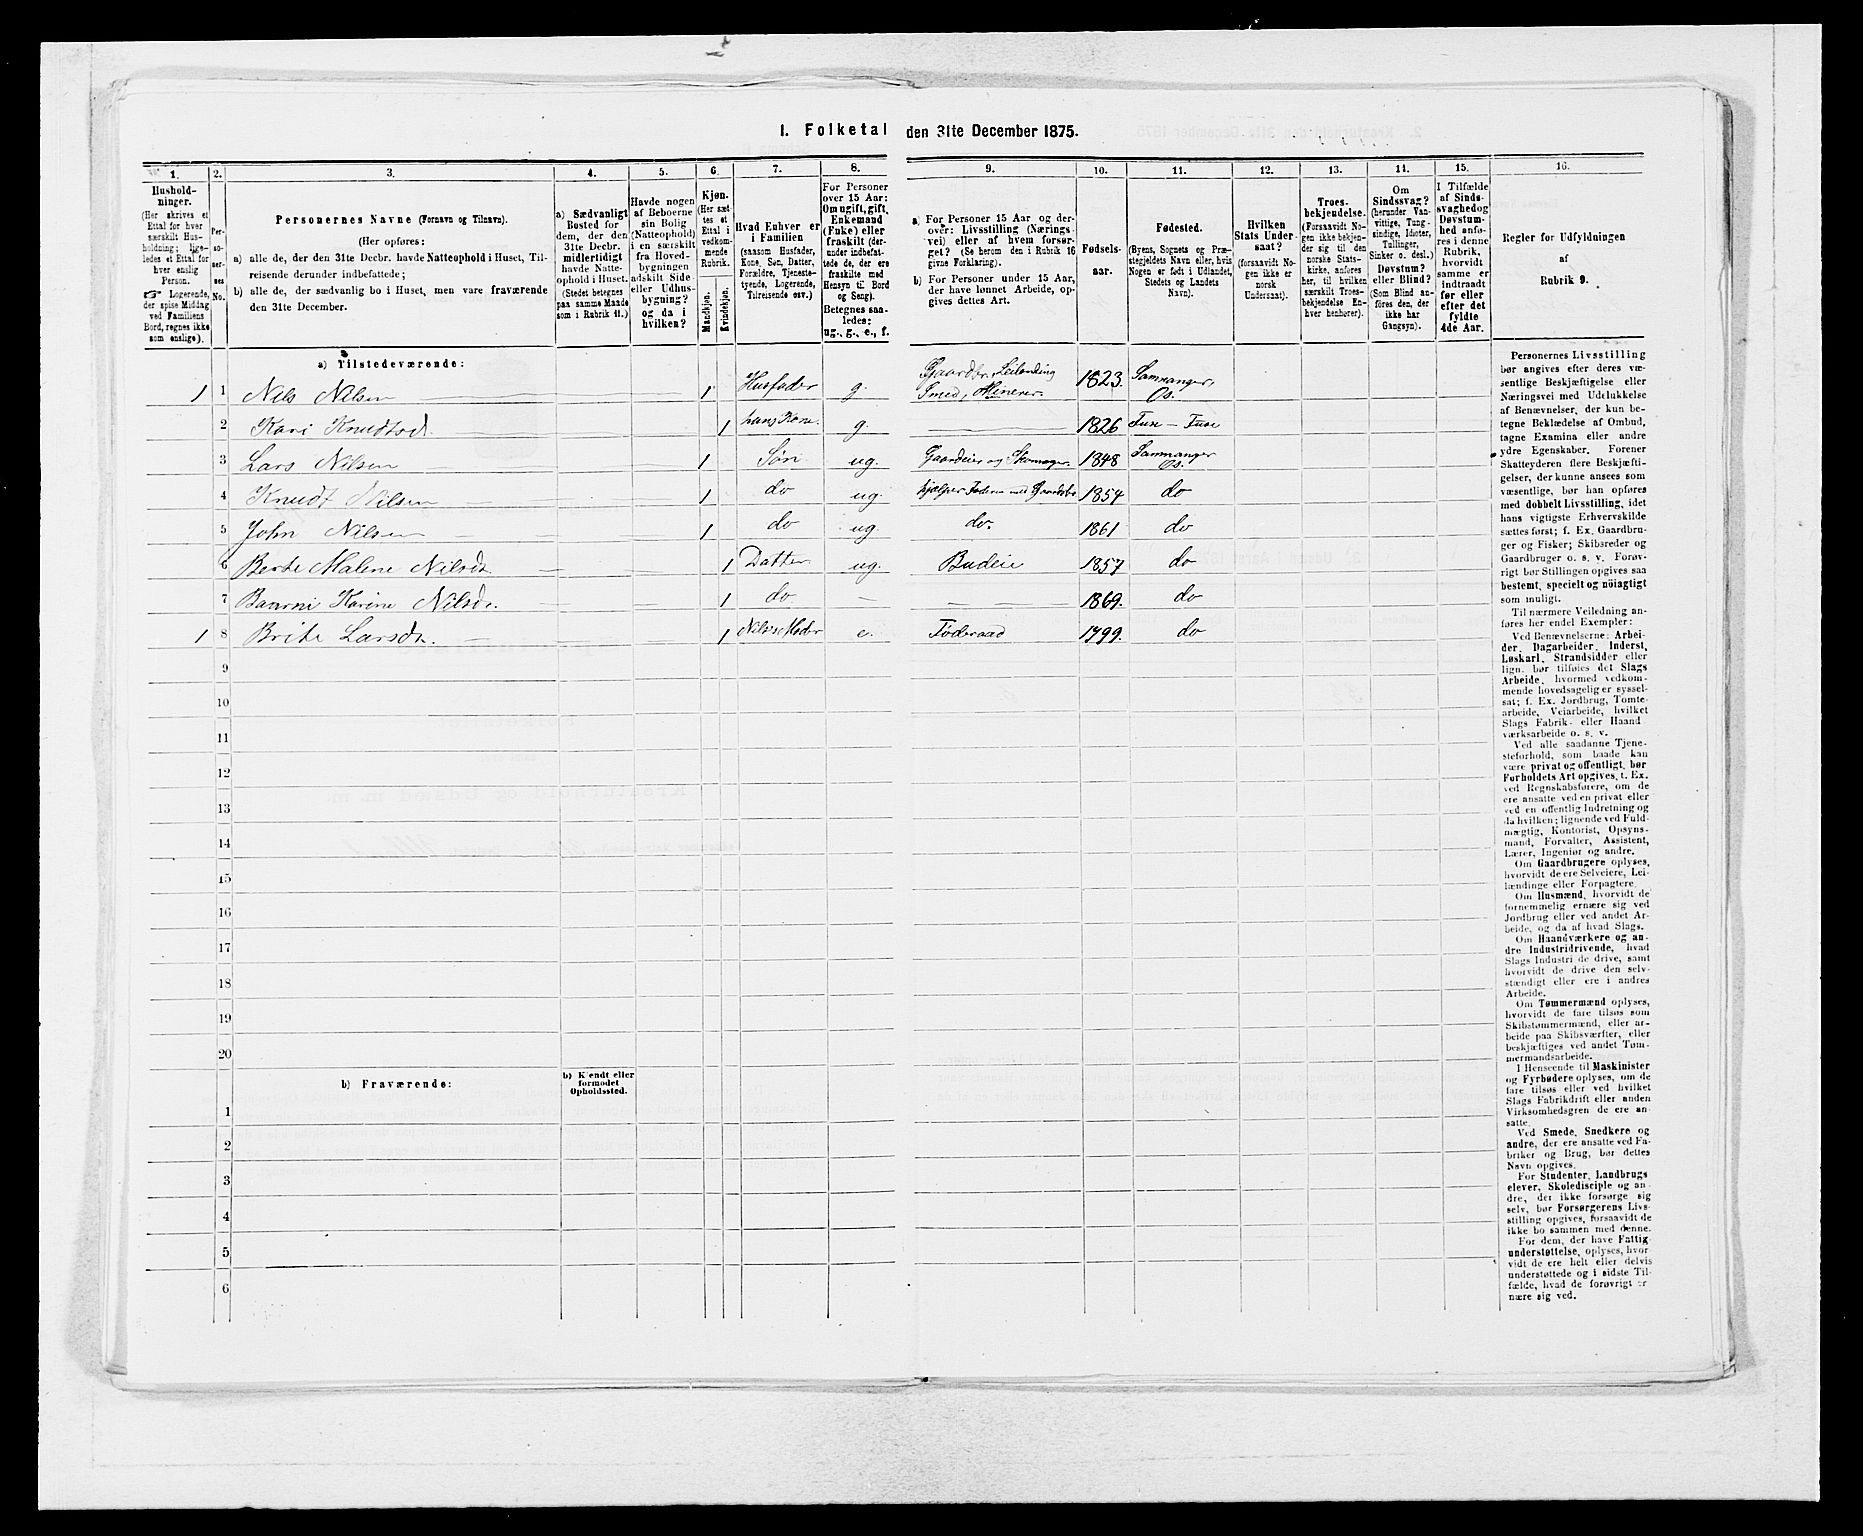 1. Folketal den 31te December 1875.
1.
Hushold-
ninger.
(Her skrives et
Ettal for hver
særskilt Hus-
holdning; lige-
ledes et Ettal for
hver enslig
Person.
☞ Logerende,
der spise Middag
ved Familiens
Bord, regnes ikke
som enslige).
2.
Per-
so-
ner-
nes
No.
3.
Personernes Navne (Fornavn og Tilnavn).
(Her opføres:
a) alle de, der den 31te Decbr. havde Natteophold i Huset, Til-
reisende derunder indbefattede;
b) alle de, der sædvanlig bo i Huset, men vare fraværende
den 31te December.
4.
a) Sædvanligt
Bosted for
dem, der den
31te Decbr.
midlertidigt
havde Natte-
ophold i Huset.
(Stedet betegnes
paa samme Maade
som i Rubrik 11.)
5.
Havde nogen
af Beboerne
sin Bolig
(Natteophold)
i en særskilt
fra Hoved-
bygningen
adskilt Side-
eller Udhus-
bygning?
og da i
hvilken?
6.
Kjøn.
(Her sæt-
tes et
Ettal i
vedkom-
mende
Rubrik.
Mandkjøn.
Kvindekjøn.
7.
Hvad Enhver er
i Familien
(saasom Husfader,
Kone, Søn, Datter,
Forældre, Tjeneste-
tyende, Logerende,
Tilreisende osv.)
8.
For Personer
over 15 Aar:
Om ugift, gift,
Enkemand
(Enke) eller
fraskilt (der-
under indbefat-
tede de, der ere
fraskilte med
Hensyn til Bord
og Seng).
Betegnes saa-
ledes:
ug., g., e., f.
9.
a) For Personer 15 Aar og der-
over: Livsstilling (Nærings-
vei) eller af hvem forsør-
get? (Se herom den i Rubrik 16
givne Forklaring).
b) For Personer under 15 Aar,
der have lønnet Arbeide, op-
gives dettes Art.
10.
Fødsels-
aar.
11.
Fødested.
(Byens, Sognets og Præ-
stegjeldets Navn eller, hvis
Nogen er født i Udlandet,
Stedets og Landets
Navn).
12.
Hvilken
Stats Under-
saat?
(forsaavidt No-
gen ikke er
norsk
Undersaat).
13.
Troes-
bekjendelse.
(Forsaavidt No-
gen ikke bekjen-
der sig til den
norske Stats-
kirke, anføres
her, til hvilken
særskilt Troes-
bekjendelse En-
hver henhører).
14.
Om
Sindssvag?
(herunder Van-
vittige, Tung-
sindige, Idioter,
Tullinger,
Sinker o. desl.)
Døvstum?
eller Blind?
(Som Blind an-
føres den, der
ikke har
Gangsyn).
15.
I Tilfælde
af Sinds-
svaghed og
Døvstum-
hed anfø-
res i denne
Rubrik,
hvorvidt
samme er
indtraadt
før eller
efter det
fyldte
4de Aar.
16.
Regler for Udfyldningen
af
Rubrik 9.
a) Tilstedeværende:
1 1 Nils Nilsen 1 Husfader g. Gaardbr. Leilænding Smed, Minerer. 1823. Samnanger, Os.
2 Kari Knudtsd. 1 hans Kone. g. 1826 Fuse – Fuse
3 Lars Nilsen 1 Søn ug. Gaardeier og Skomager. 1848 Samnanger Os.
4 Knudt Nilsen 1 do ug. hjælper Faderen med Gaardsbr. 1854 do
5 John Nilsen 1 do ug. do. 1861 do
6 Berte Malene Nilsd. 1 Datter ug. Budeie 1857 do
7 Baarni Karine Nilsdr. 1 do – 1869. do
1 8 Brite Larsdr. 1 Nils's Moder e. Føderaad 1799. do
9
10
11
12
13
14
15
16
17
18
19
20
b) Fraværende:
b) Kjendt eller
formodet
Opholdssted.
1
2
3
4
5
6
Personernes Livsstilling
bør angives efter deres væ-
sentlige Beskjæftigelse eller
Næringsvei med Udelukkelse
af Benævnelser, der kun be-
tegne Beklædelse af Ombud,
tagne Examina eller andre
ydre Egenskaber. Forener
Skatteyderen flere Beskjæfti-
gelser, der kunne ansees som
væsentlige, bør han opføres
med dobbelt Livsstilling, idet
hans vigtigste Erhvervskilde
sættes først; f. Ex. Gaardbru-
ger og Fisker; Skibsreder og
Gaardbruger o. s. v. Forøv-
rigt bør Stillingen opgives saa
bestemt, specielt og nöiagtigt
som muligt.
Til nærmere Veiledning an-
føres her endel Exempler:
Ved Benævnelserne: Arbei-
der, Dagarbeider, Inderst,
Løskarl, Strandsidder eller
lign. bør tilføies det Slags
Arbeide, hvormed vedkom-
mende hovedsagelig er syssel-
sat; f. Ex. Jordbrug, Tomte-
arbeide, Veiarbeide, hvilket
Slags Fabrik- eller Haand-
værksarbeide o. s. v.
Ved alle saadanne Tjene-
steforhold, som baade kan
være privat og offentligt, bør
Forholdets Art opgives, t. Ex.
ved Regnskabsførere, om de
ere ansatte ved en privat eller
ved en offentlig Indretning og
da hvilken; lignende ved Fuld-
mægtig, Kontorist, Opsyns-
mand, Forvalter, Assistent,
Lærer, Ingeniør og andre.
Om Gaardbrugere oplyses,
hvorvidt de ere Selveiere, Lei-
lændinge eller Forpagtere.
Om Husmænd, hvorvidt de
fornemmelig ernære sig ved
Jordbrug eller ved andet Ar-
beide, og da af hvad Slags.
Om Haandværkere og an-
dre Industridrivende, hvad
Slags Industri de drive, samt
hvorvidt de drive den selv-
stændigt eller ere i andres
Arbeide.
Om Tømmermænd oplyses,
hvorvidt de fare tilsøs som
Skibstømmermænd, eller ar-
beide paa Skibsværfter, eller
beskjæftiges ved andet Tøm-
mermandsarbeide.
I Henseende til Maskinister
og Fyrbødere oplyses, om de
fare tilsøs eller ved hvilket
Slags Fabrikdrift eller anden
Virksomhedsgren de ere an-
satte.
Ved Smede, Snedkere og
andre, der ere ansatte ved Fa-
briker og Brug, bør dettes
Navn opgives.
For Studenter, Landbrugs-
elever, Skoledisciple og an-
dre, der ikke forsørge sig
selv, bør Forsørgerens Livs-
stilling opgives, forsaavidt de
ikke bo sammen med denne.
For dem, der have Fattig-
understøttelse, oplyses, hvor-
vidt de ere helt eller delvis
understøttede og i sidste Til-
fælde, hvad de forøvrigt er-
nære sig ved.